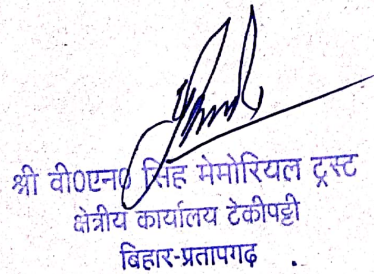 श्री वी०एन० सिंह मेमोरियल ट्रस्ट
क्षेत्रीय कार्यालय टेकीपट्टी
बिहार-प्रतापगढ़